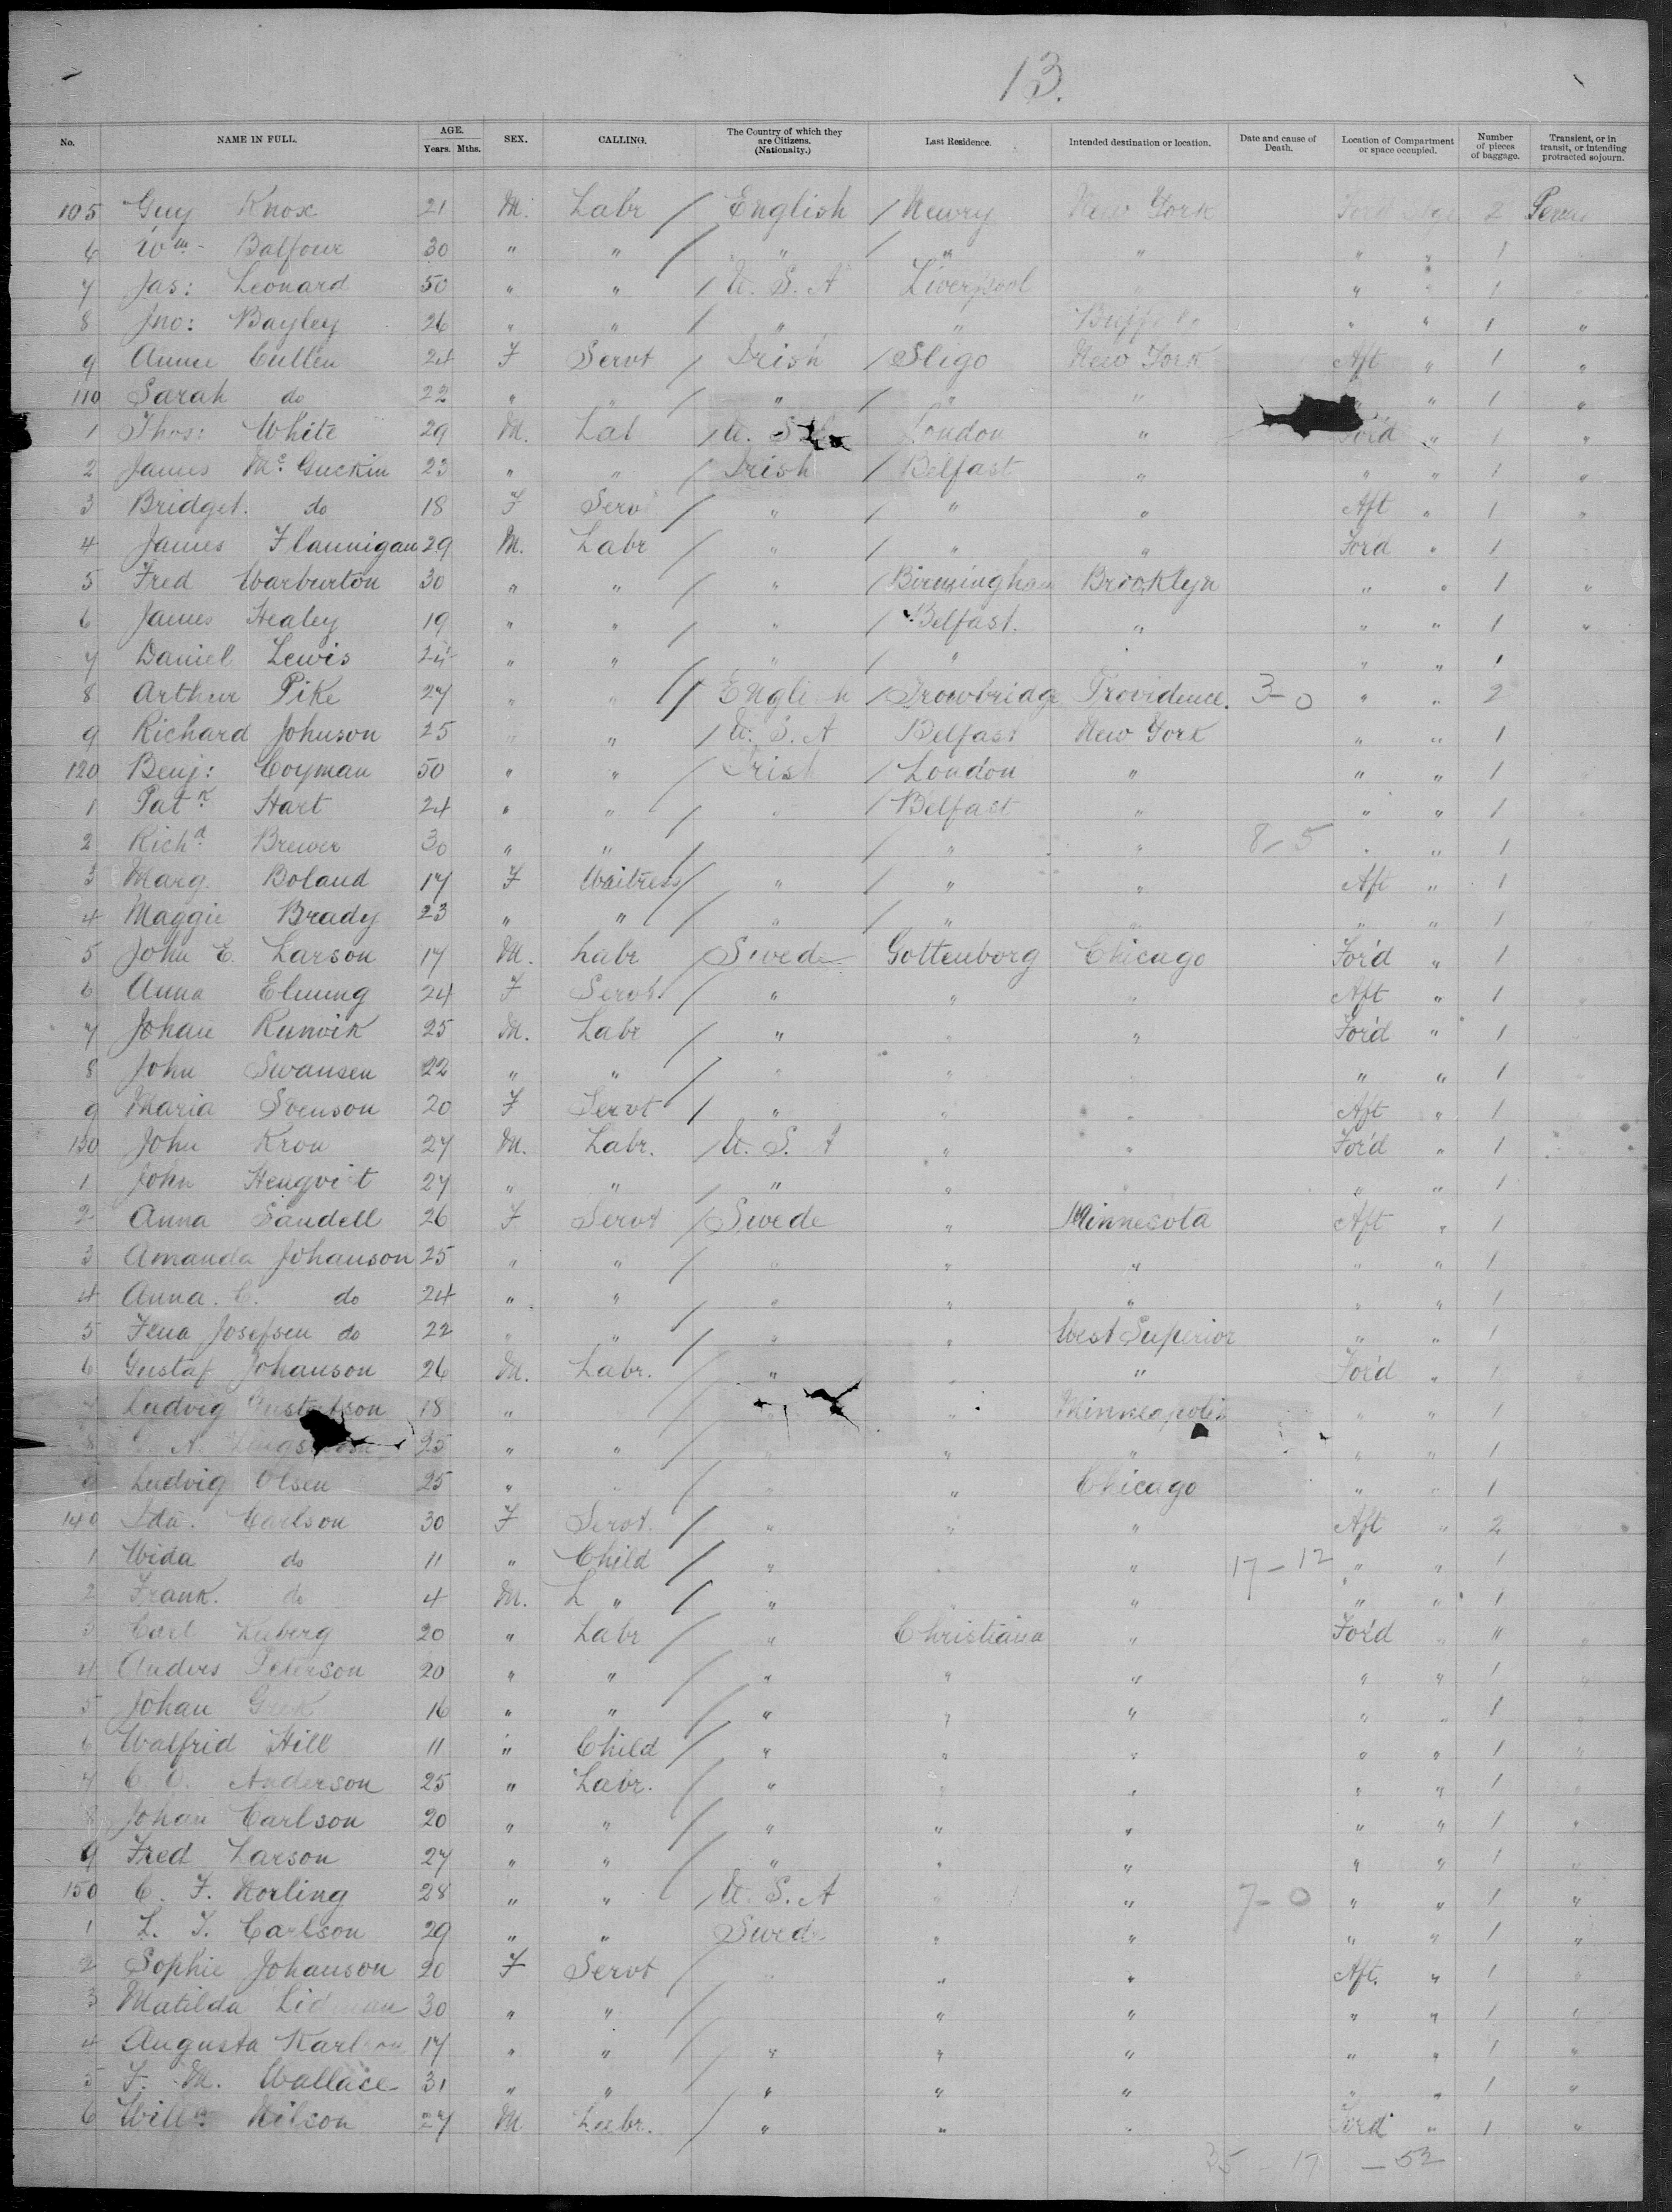 13.
No. NAME IN FULL. AGE. Years. Mths. SEX. CALLING. The Country of which they are Citizens. (Nationalty.) Last Residence. Intended destination or location. Date and cause of Death. Location of Compartment or space occupied. Number of pieces of baggage. Transient, or in transit, or intending protracted sojourn.
105 Guy Knox 21 M. Labr / English / Newry New York 2
6 Wm Balfour 30 " " / " / " " " " 1
7 Jas: Leonard 50 " " / U. S. A Liverpool " " " 1
8 Jno: Bayley 26 " " / " " Buffalo " " 1 "
9 Annie Cullen 24 F Servt / Irish / Sligo New York Aft " 1 "
110 Sarah do 22 " " / " / " " " 1 "
1 Thos: White 29 M. Lab / U. S. London " Ford " 1 "
2 James Mc Guckin 23 " " / Irish / Belfast " " " 1 "
3 Bridget. do 18 F Serv / " / " " Aft " 1 "
4 James Flannigan 29 M. Labr / " / " " Ford " 1
5 Fred Warburton 30 " " / " / Birmingham Brooklyn " " 1 "
6 James Healey 19 " " / " / Belfast. " " " 1 "
7 Daniel Lewis 24 " " / " / " " " 1
8 Arthur Pike 27 " " / English / Trowbridge Providence. 3-0 " " 2
9 Richard Johnson 25 " " / U. S. A Belfast New York " " 1
120 Benj: Coyman 50 " " / Irish / London " " " 1
1 Patk Hart 24 " " / " / Belfast " " " 1
2 Richd Brewer 30 " " / / " " 8-5 " " 1
3 Marg. Boland 17 F Waitress / " / " " Aft " 1
4 Maggie Brady 23 " " / " / " " " " 1
5 John E. Larson 17 M. Labr / Swede Gottenborg Chicago Ford " 1
6 Anna Elming 24 F Servt. / " " " Aft " 1
7 Johan Runvik 25 M. Labr / " " " Ford " 1
8 John Swansen 22 " " / " " " " 1
9 Maria Svenson 20 F Servt / " " " Aft " 1
130 John Kron 27 M. Labr. / U. S. A " " Ford " 1
1 John Hengvist 27 " " / " " " " 1
2 Anna Sandell 26 F Servt / Swede " Minnesota Aft " 1
3 Amanda Johanson 25 " " / " " " " " 1
4 Anna. C. do 24 " " / " " " " " 1
5 Josefsen do 22 " " / " " West Superior " " 1
6 Gustaf Johanson 26 M. Labr. / " " " Ford " 1
Ludvig Gustafson 18 " / " Minneapolis " " 1
8 A. 25 " " / " " " " " 1
9 Ludvig Olsen 25 " " / " " Chicago " " 1
140 Ida. Carlson 30 F Servt. / " " " Aft " 2
1 Wida do 11 " Child / " " 17-12 " " 1
2 Frank. do 4 M. " / " " " " 1
3 Carl Luberg 20 " Labr / " Christiana " Ford " "
4 Anders Peterson 20 " " / " " " " " 1
5 Johan 16 " " / " " " " " 1
6 Walfrid Hill 11 " Child / " " " " " 1
7 C. O. Anderson 25 " Labr. / " " " " " 1
8 Johan Carlson 20 " " / " " " " " 1 "
9 Fred Larson 27 " " / " " " " " 1 "
150 C. F. Norling 28 " " / U. S. A " " 7-0 " " 1 "
1 L. J. Carlson 29 " " Swede " " " " 1 "
2 Sophie Johanson 20 F Servt / " " " Aft. " 1 "
3 Matilda Lidman 30 " " / " " " " 1 "
4 Augusta Karlson 17 " " / " " " " " 1 "
5 F. M. Wallace 31 " " / " " " " " 1 "
6 Willm Nilson 27 M Labr. / " " " Ford " 1 "
35 - 17 - 52